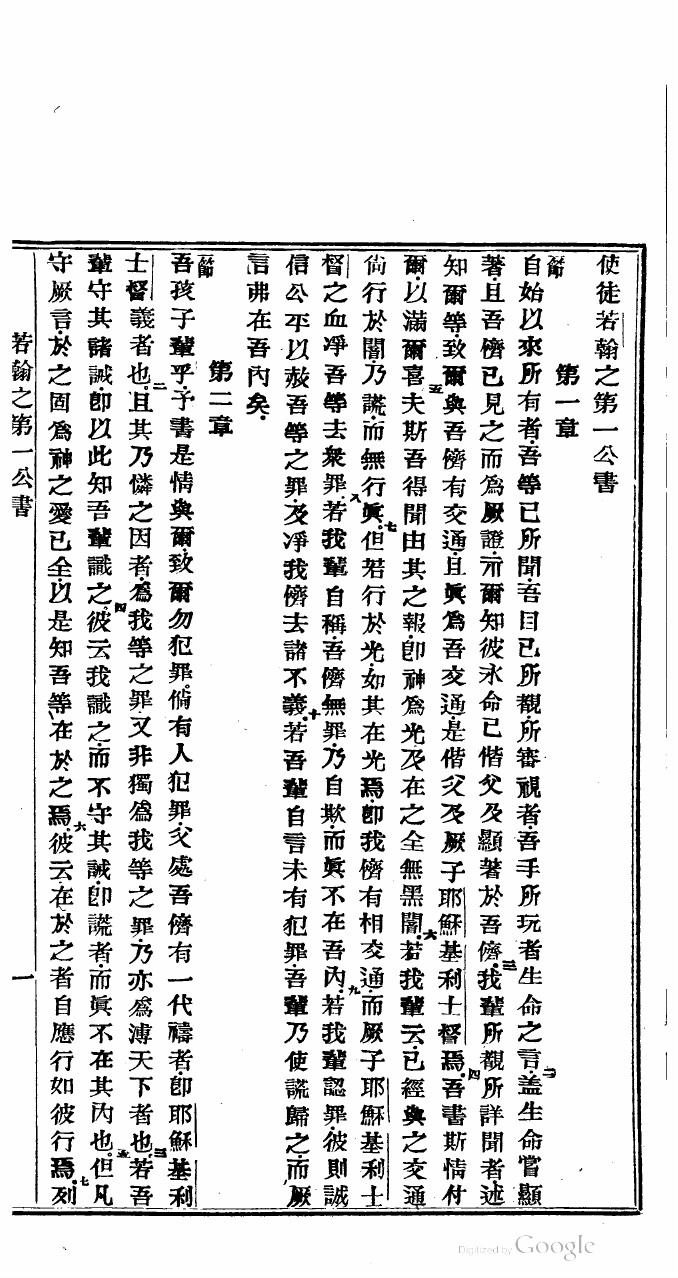 使徒若翰之第一公書
第一章
節自始以來所有者吾等已所聞吾目已所覩所審視者吾手所玩者生命之言蓋二生命嘗顯
著且吾儕已見之而為厥證示爾知彼永命已偕父及顯著於吾儕三我輩所覩所詳聞者述
知爾等致爾與吾儕有交通且眞為吾交通是偕父及厥子耶穌基利士督焉四吾書斯情付
爾以滿爾喜五夫斯吾得聞由其之報卽神為光及在之全無黑闇六若我輩云已經與之交通
尙行於闇乃謊而無行眞七但若行於光如其在光焉卽我儕有相交通而厥子耶穌基利士
督之血凈吾等去衆罪八若我輩自稱吾儕無罪乃自欺而眞不在吾內九若我輩認罪彼則誠
信公平以赦吾等之罪及凈我儕去諸不義十若吾輩自言未有犯罪吾輩乃使謊歸之而厥
言弗在吾內矣
第二章
節吾孩子輩乎予書是情與爾致爾勿犯罪倘有人犯罪父處吾儕有一代禱者卽耶穌基利
士督義者也二且其乃憐之因者為我等之罪又非獨為我等之罪乃亦為溥天下者也三若吾
輩守其諸誡卽以此知吾輩識之四彼云我識之而不守其誡卽謊者而眞不在其內也五但凡
守厥言於之固為神之愛已全以是知吾等在於之焉六彼云在於之者自應行如彼行焉七列
若翰之第一公書
一
Digitized by Google